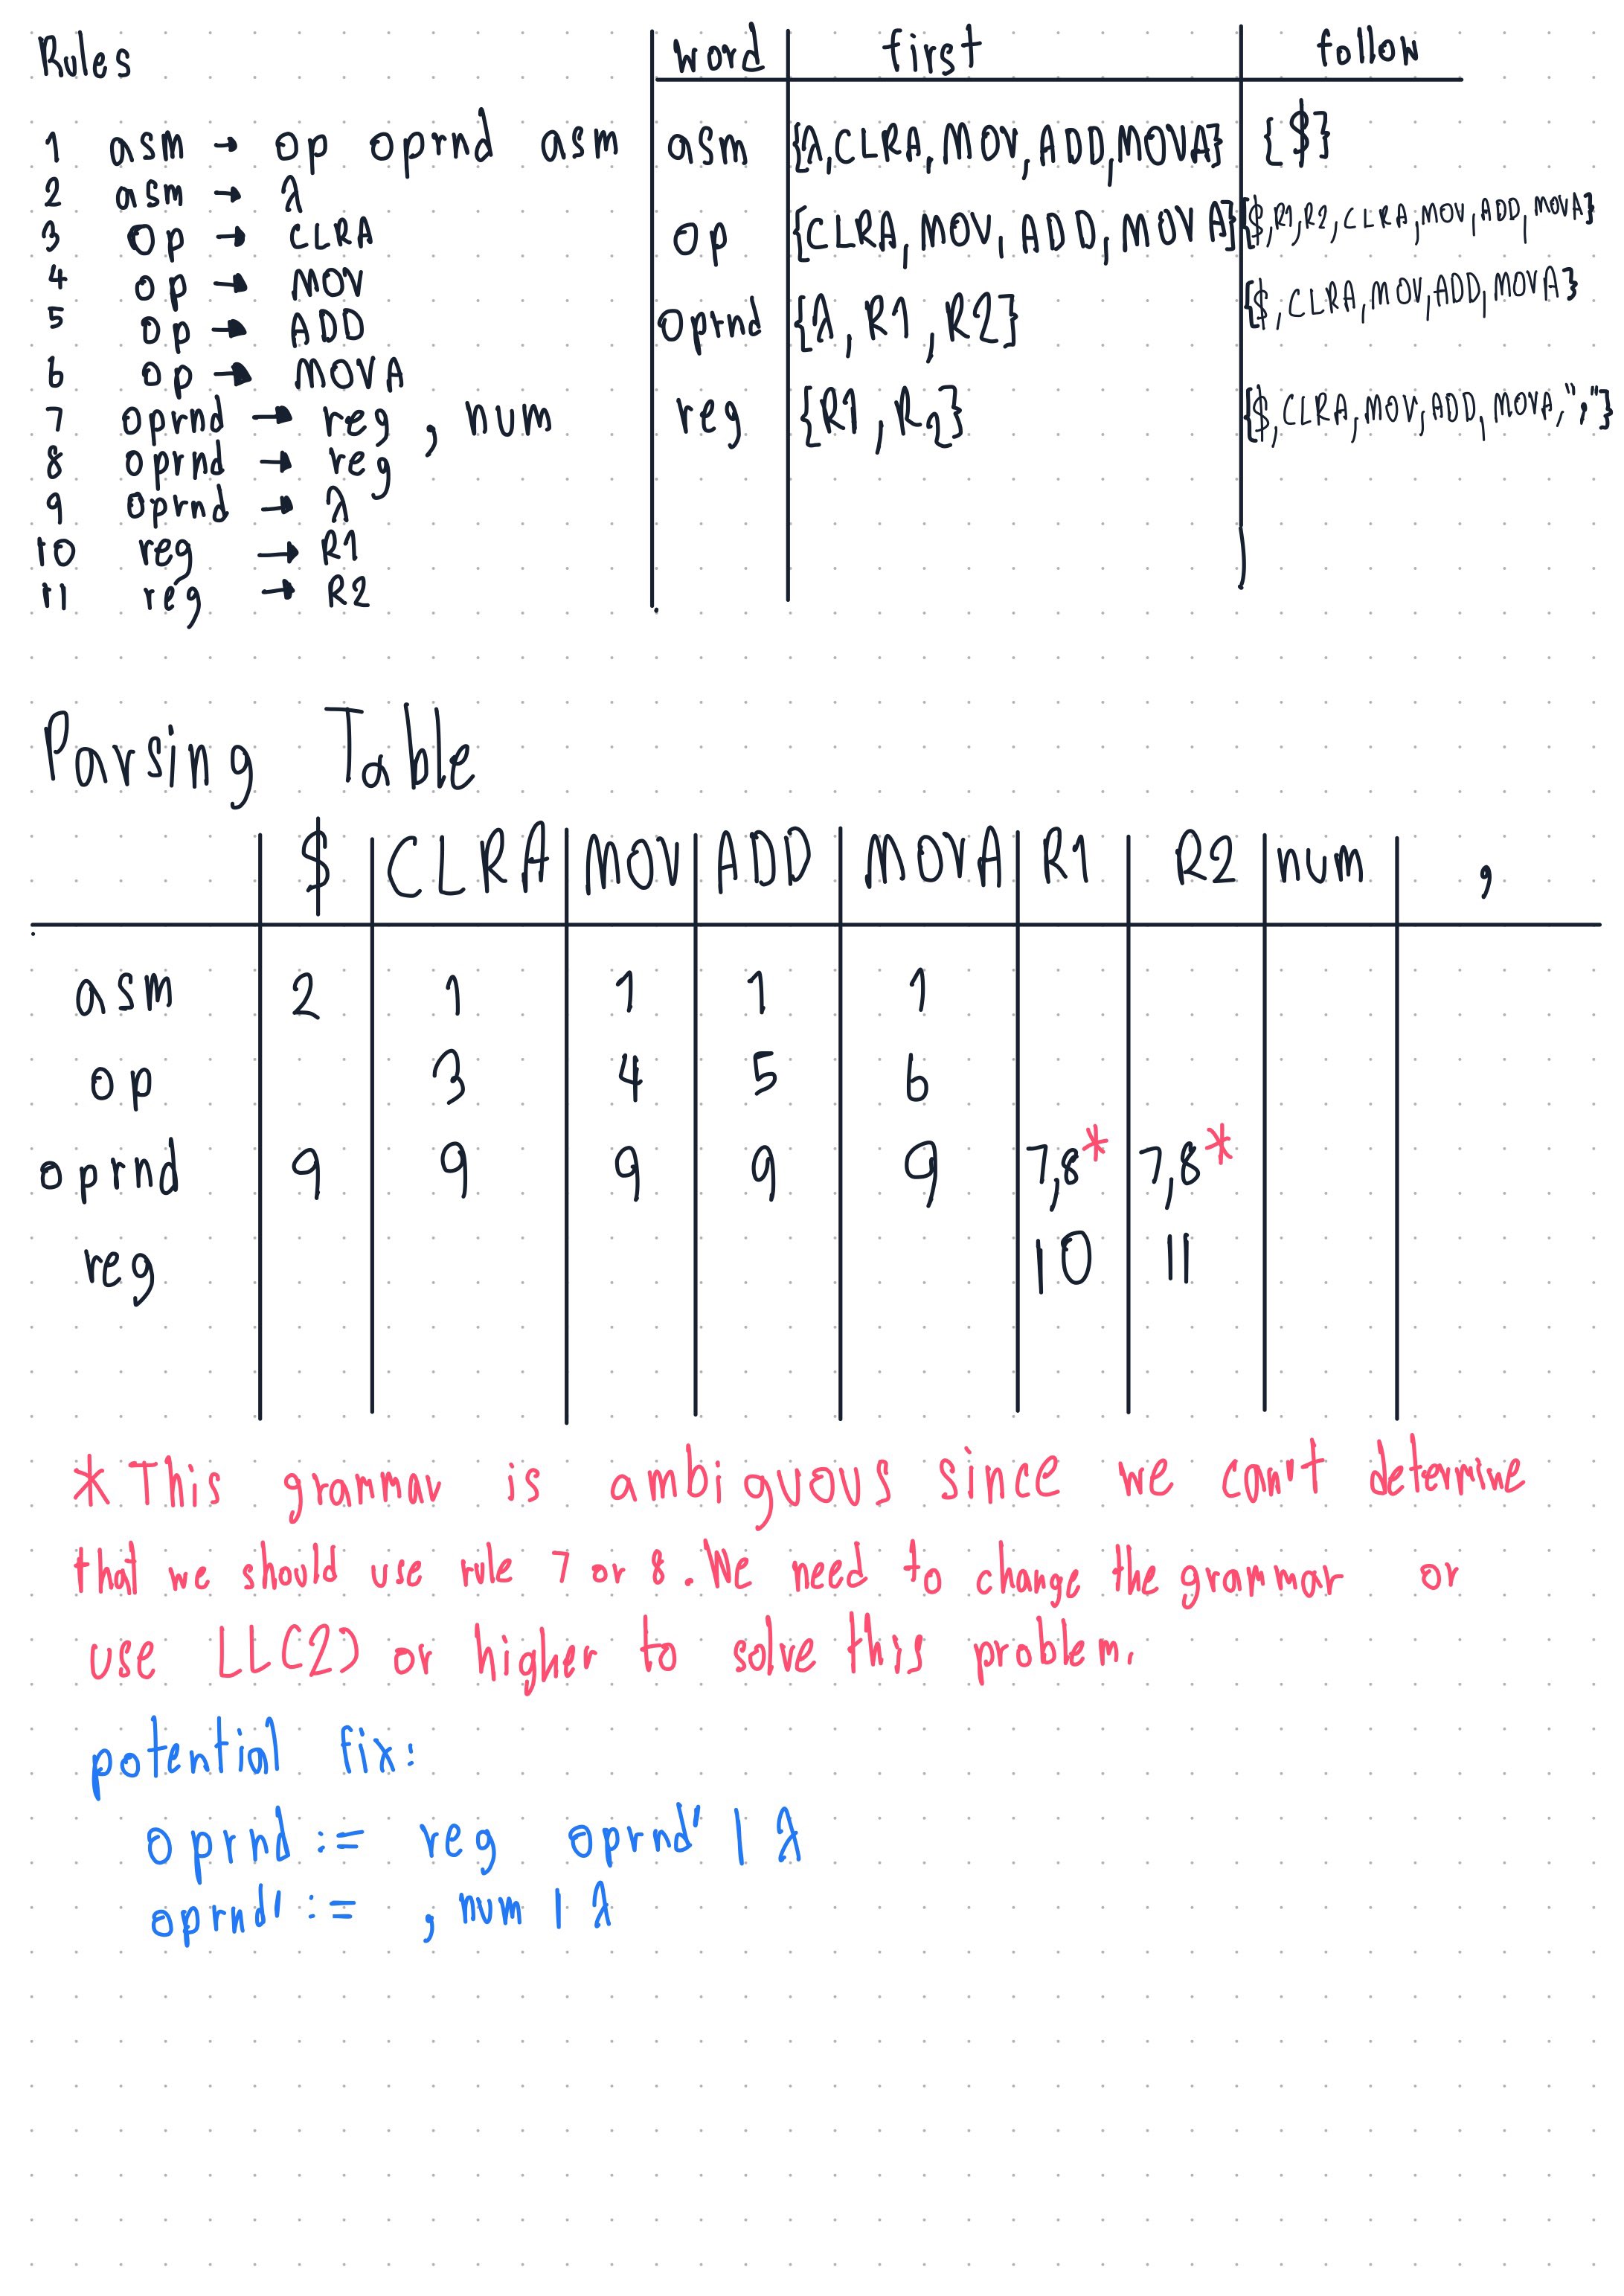 Rules
word first follow
1 asm → op oprnd asm
2 asm → λ
3 op → CLRA
4 op → MOV
5 op → ADD
6 op → MOVA
7 oprnd → reg , num
8 oprnd → reg
9 oprnd → λ
10 reg → R1
11 reg → R2
asm {λ,CLRA,MOV,ADD,MOVA} {$}
op {CLRA,MOV,ADD,MOVA} {$,R1,R2,CLRA,MOV,ADD,MOVA}
oprnd {λ,R1,R2} {$,CLRA,MOV,ADD,MOVA}
reg {R1,R2} {$,CLRA,MOV,ADD,MOVA,","}
Parsing Table
$ CLRA MOV ADD MOVA R1 R2 num ,
asm 2 1 1 1 1
op 3 4 5 6
oprnd 9 9 9 9 9 7,8* 7,8*
reg 10 11
* This grammar is ambiguous since we can't determine
that we should use rule 7 or 8. We need to change the grammar or
use LL(2) or higher to solve this problem.
potential fix:
oprnd := reg oprnd' | λ
oprnd' := , num | λ